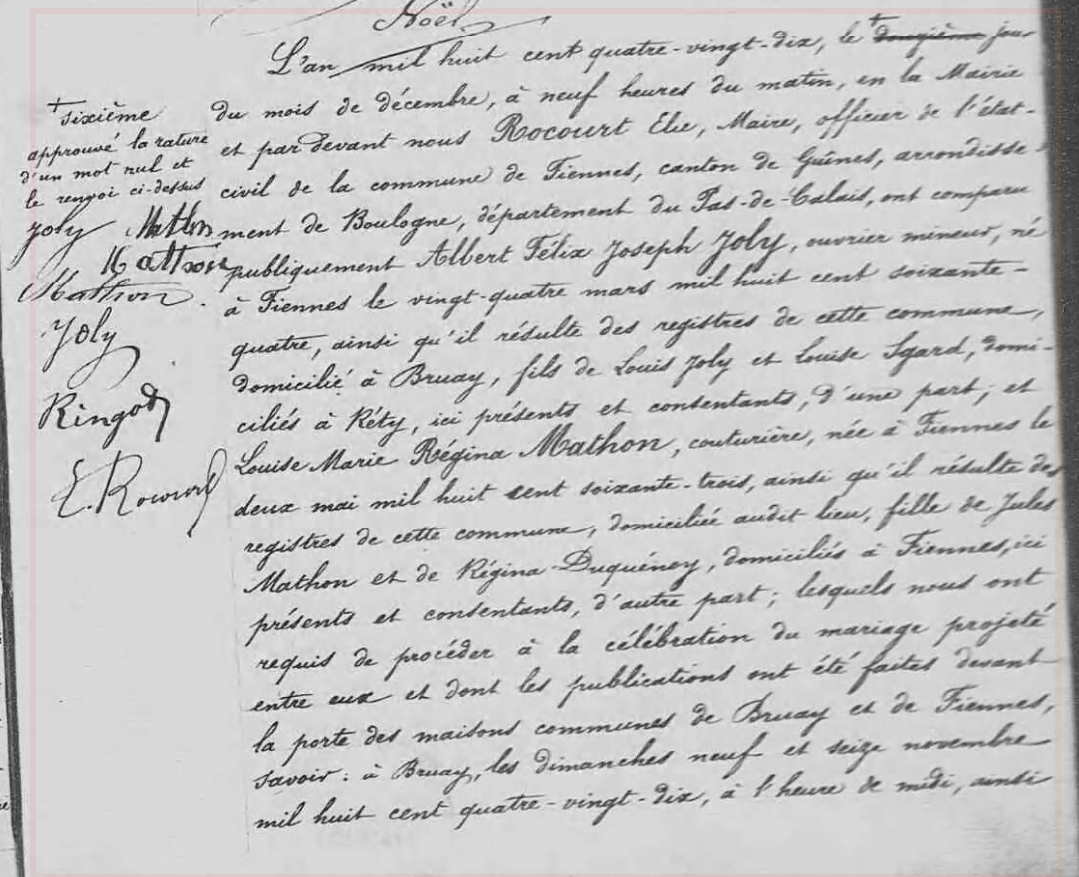 Noël
L'an mil huit cent quatre-vingt-dix, le + douzième jour
du mois de décembre, à neuf heures du matin, en la Mairie
et par devant nous Rocourt Elie, Maire, officier de l'état-
civil de la commune de Fiennes, canton de Guînes, arrondisse-
ment de Boulogne, département du Pas-de-Calais, ont comparu
publiquement Albert Félix Joseph Joly, ouvrier mineur, né
à Fiennes le vingt-quatre mars mil huit cent soixante-
quatre, ainsi qu'il résulte des registres de cette commune,
domicilié à Bruay, fils de Louis Joly et Louise Sgard, domi-
ciliés à Réty, ici présents et consentants, d'une part; et
Louise Marie Régina Mathon, couturière, née à Fiennes le
deux mai mil huit cent soixante-trois, ainsi qu'il résulte des
registres de cette commune, domiciliée audit lieu, fille de Jules
Mathon et de Régina Duquénoy, domiciliés à Fiennes, ici
présents et consentants, d'autre part; lesquels nous ont
requis de procéder à la célébration du mariage projeté
entre eux et dont les publications ont été faites devant
la porte des maisons communes de Bruay et de Fiennes,
savoir: à Bruay, les dimanches neuf et seize novembre
mil huit cent quatre-vingt-dix, à l'heure de midi, ainsi
+ sixième
approuvé la rature
d'un mot nul et
le renvoi ci-dessus
Joly Mathon
Mathon
Mathon
Joly
Ringod
E. Rocourt